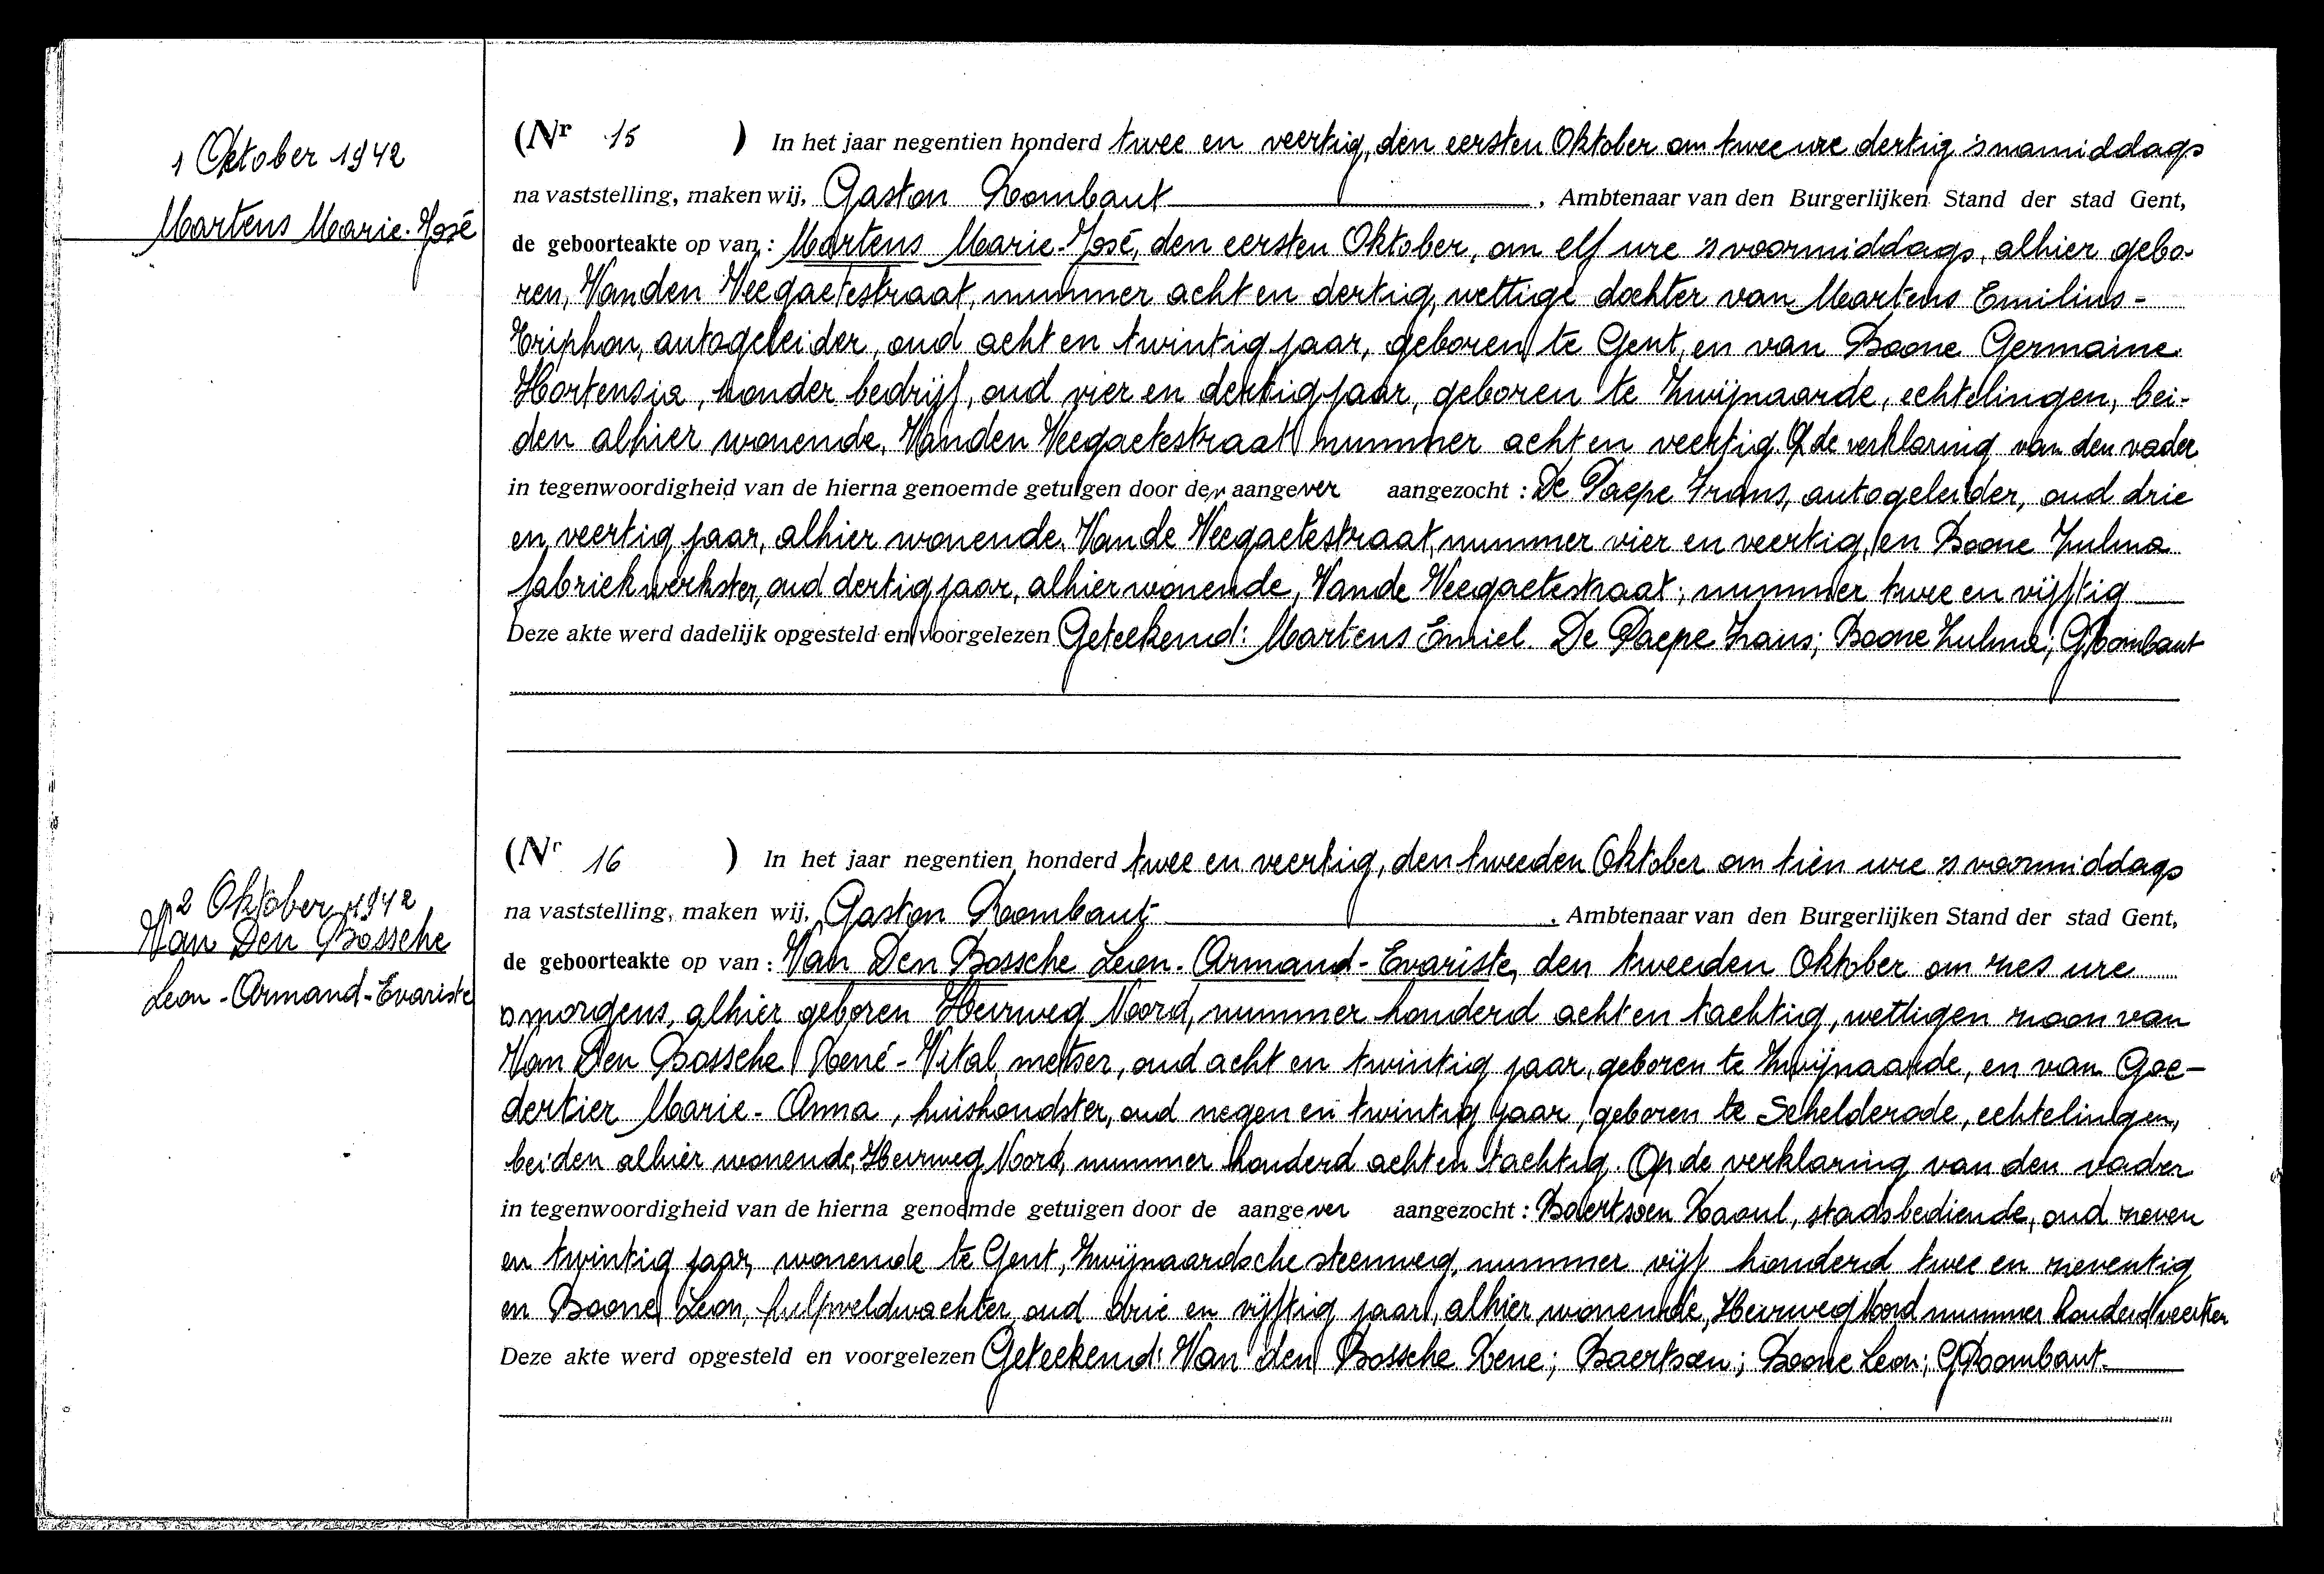 1 Oktober 1942
Martens Marie-José
(Nr 15 ) In het jaar negentien honderd twee en veertig, den eersten Oktober om twee ure dertig 's namiddags
na vaststelling, maken wij, Gaston Roombaut, Ambtenaar van den Burgerlijken Stand der stad Gent,
de geboorteakte op van : Martens Marie-José, den eersten Oktober, om elf ure 's voormiddags, alhier gebo-
ren, Vanden Veegaetestraat, nummer acht en dertig, wettige dochter van Martens Emilius-
Triphon, autogeleider, oud acht en twintig jaar, geboren te Gent, en van Boone Germaine
Hortensia, zonder bedrijf, oud vier en dertig jaar, geboren te Zwijnaarde, echtelingen, bei-
den alhier wonende, Vanden Veegaetestraat nummer acht en veertig. Op de verklaring van den vader
in tegenwoordigheid van de hierna genoemde getuigen door den aangever aangezocht : De Paepe Frans, autogeleider, oud drie
en veertig jaar, alhier wonende, Van de Veegaetestraat, nummer vier en veertig, en Boone Zulma
fabriekwerkster, oud dertig jaar, alhier wonende, Van de Veegaetestraat, nummer twee en vijftig
Deze akte werd dadelijk opgesteld en voorgelezen Geteekend: Martens Emiel. De Paepe Frans; Boone Zulma; G Roombaut
2 Oktober 1942
Van Den Bossche
Leon-Armand-Evariste
(Nr 16 ) In het jaar negentien honderd twee en veertig, den tweeden Oktober om tien ure 's voormiddags
na vaststelling, maken wij, Gaston Roombaut, Ambtenaar van den Burgerlijken Stand der stad Gent,
de geboorteakte op van : Van Den Bossche Leon-Armand-Evariste, den tweeden Oktober om zes ure
's morgens, alhier geboren Heirweg Noord, nummer honderd acht en tachtig, wettigen zoon van
Van Den Bossche René-Vital, metser, oud acht en twintig jaar, geboren te Zwijnaarde, en van Goe-
dertier Marie-Anna, huishoudster, oud negen en twintig jaar, geboren te Schelderode, echtelingen,
beiden alhier wonende, Heirweg Noord, nummer honderd acht en tachtig. Op de verklaring van den vader
in tegenwoordigheid van de hierna genoemde getuigen door de aangever aangezocht : Baertsoen Raoul, stadsbediende, oud zeven
en twintig jaar, wonende te Gent, Zwijnaardsche steenweg, nummer vijf honderd twee en zeventig
en Boone Leon, hulpveldwachter, oud drie en vijftig jaar, alhier wonende, Heirweg Noord nummer honderd veertien
Deze akte werd opgesteld en voorgelezen Geteekend: Van den Bossche Rene; Baertsoen; Boone Leon; G Roombaut.